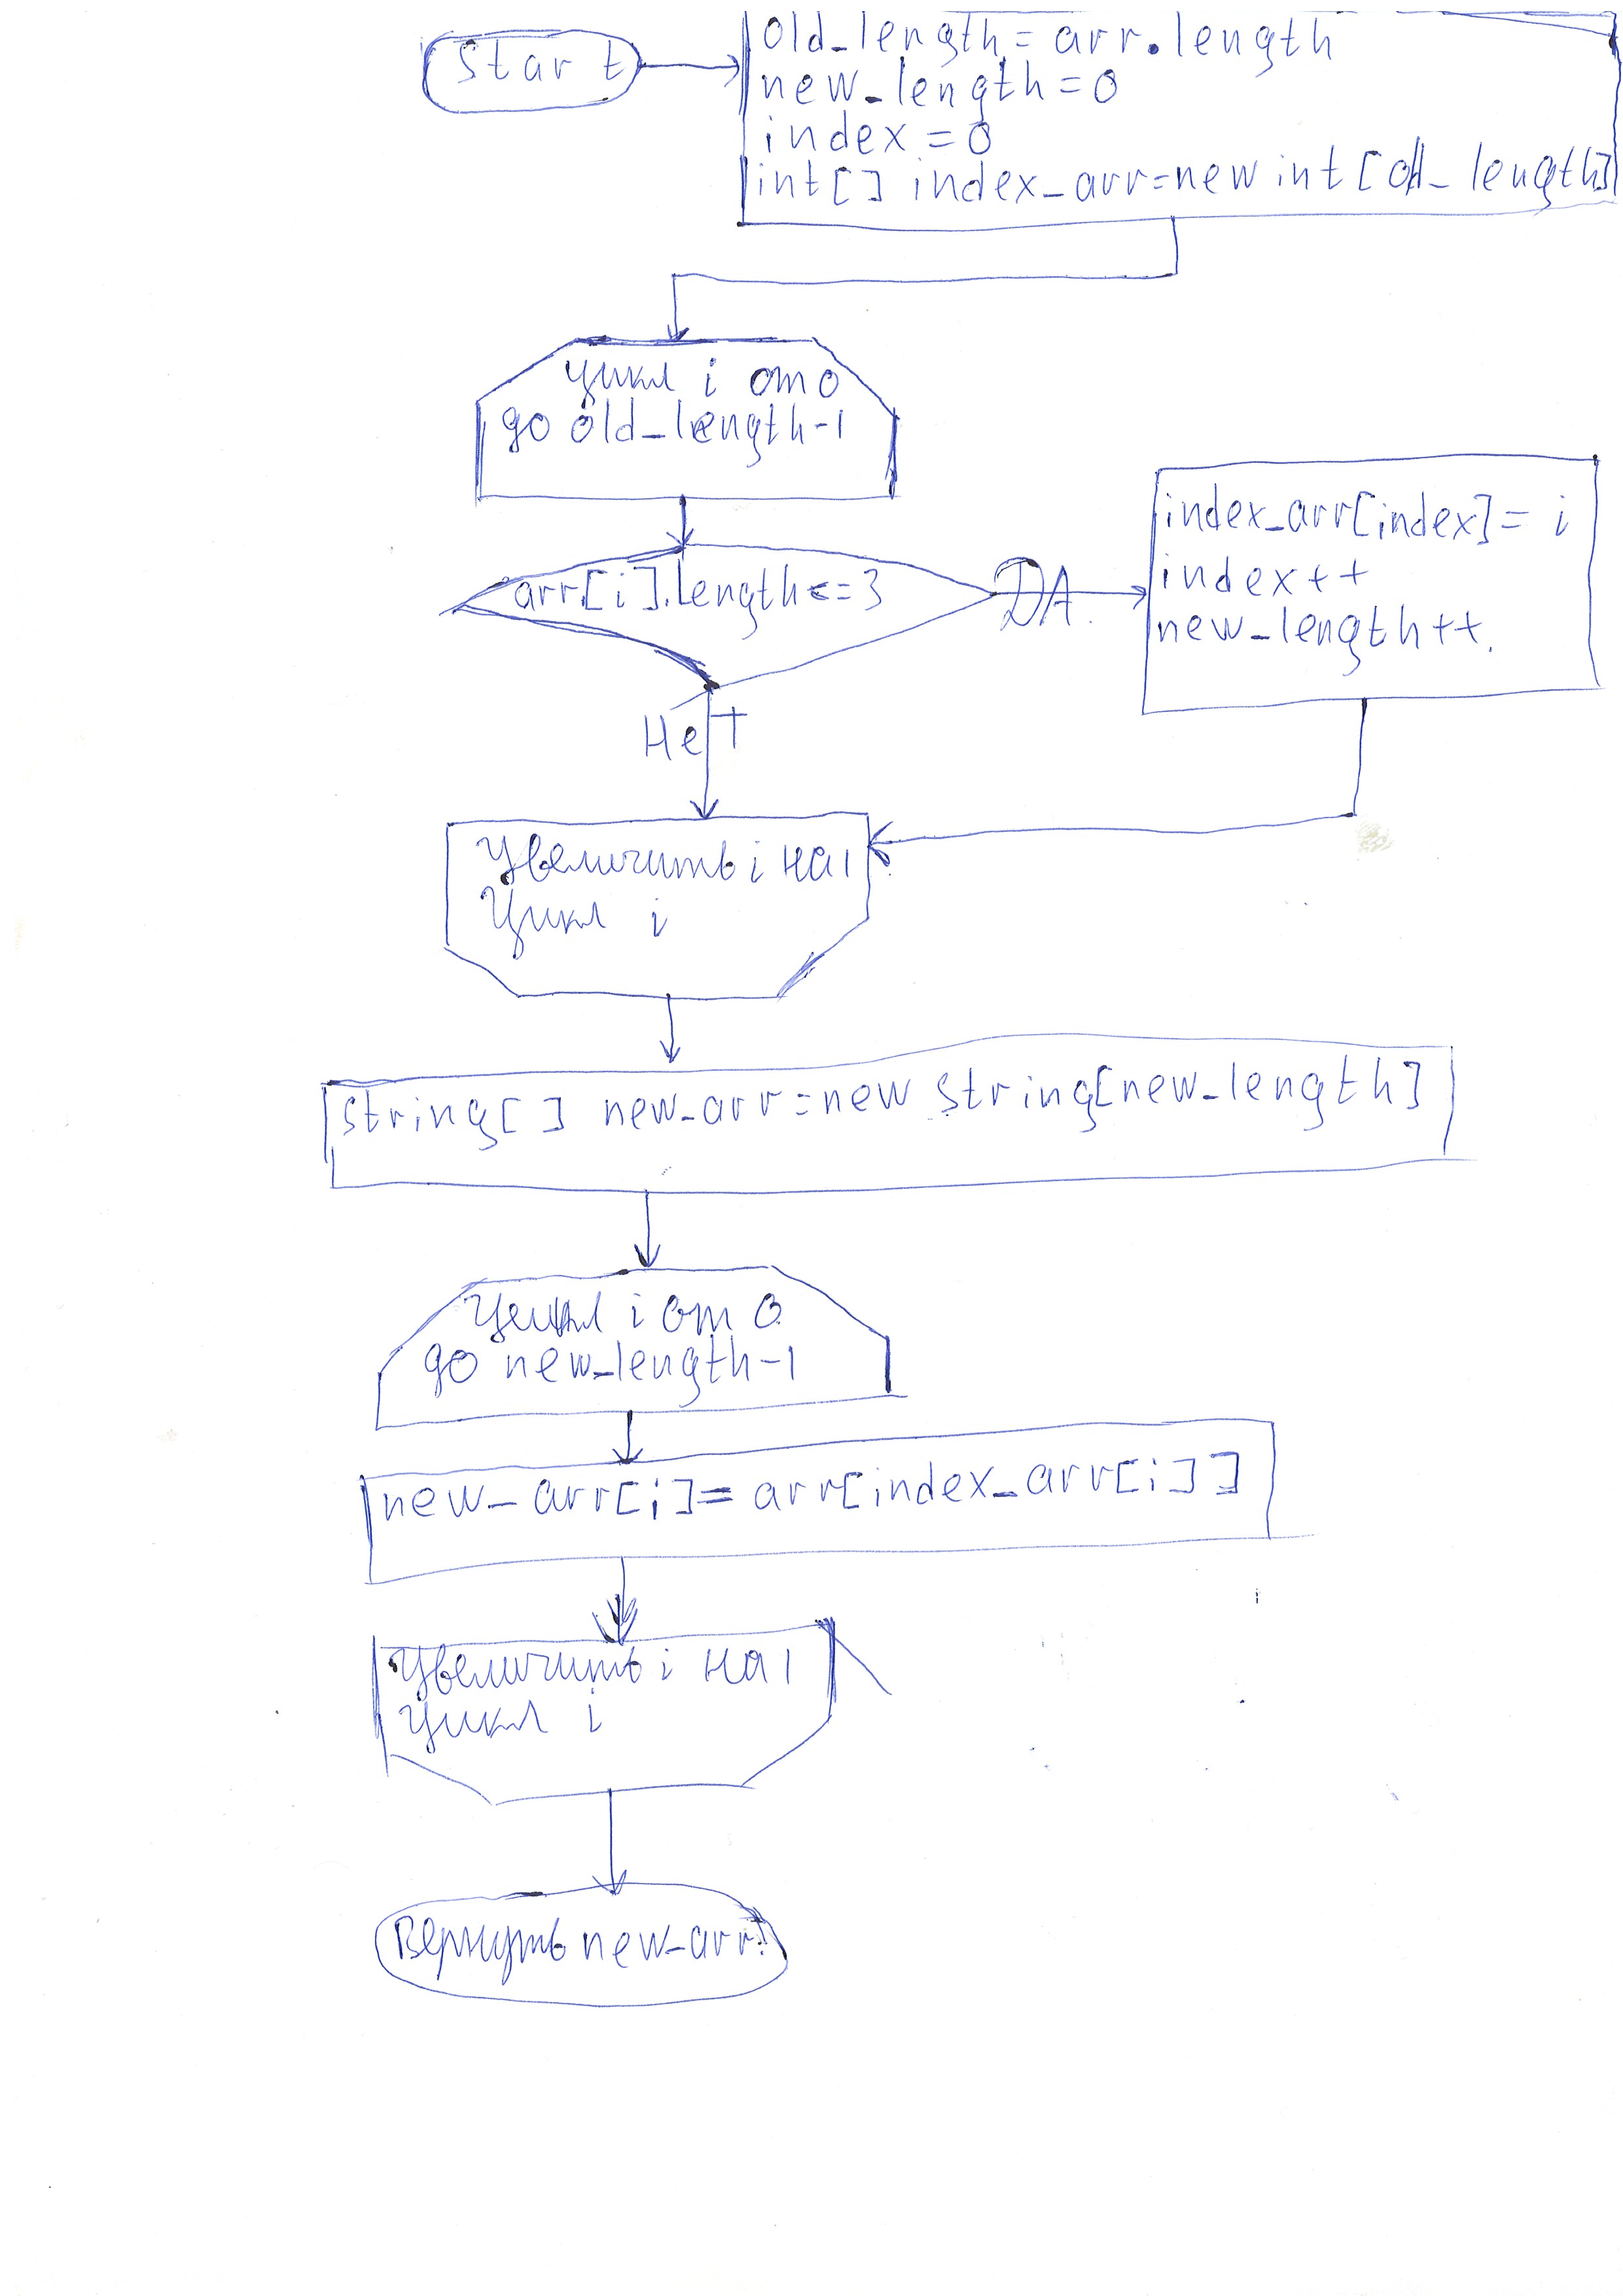 Start
old_length = arr.length
new_length = 0
index = 0
int[] index_arr = new int[old_length]
цикл i от 0
до old_length-1
arr[i].length <= 3
DA
index_arr[index] = i
index++
new_length++.
Нет
Увеличить i на 1
Цикл i
string[] new_arr = new string[new_length]
Цикл i от 0
до new_length-1
new_arr[i] = arr[index_arr[i]]
Увеличить i на 1
цикл i
Вернуть new_arr